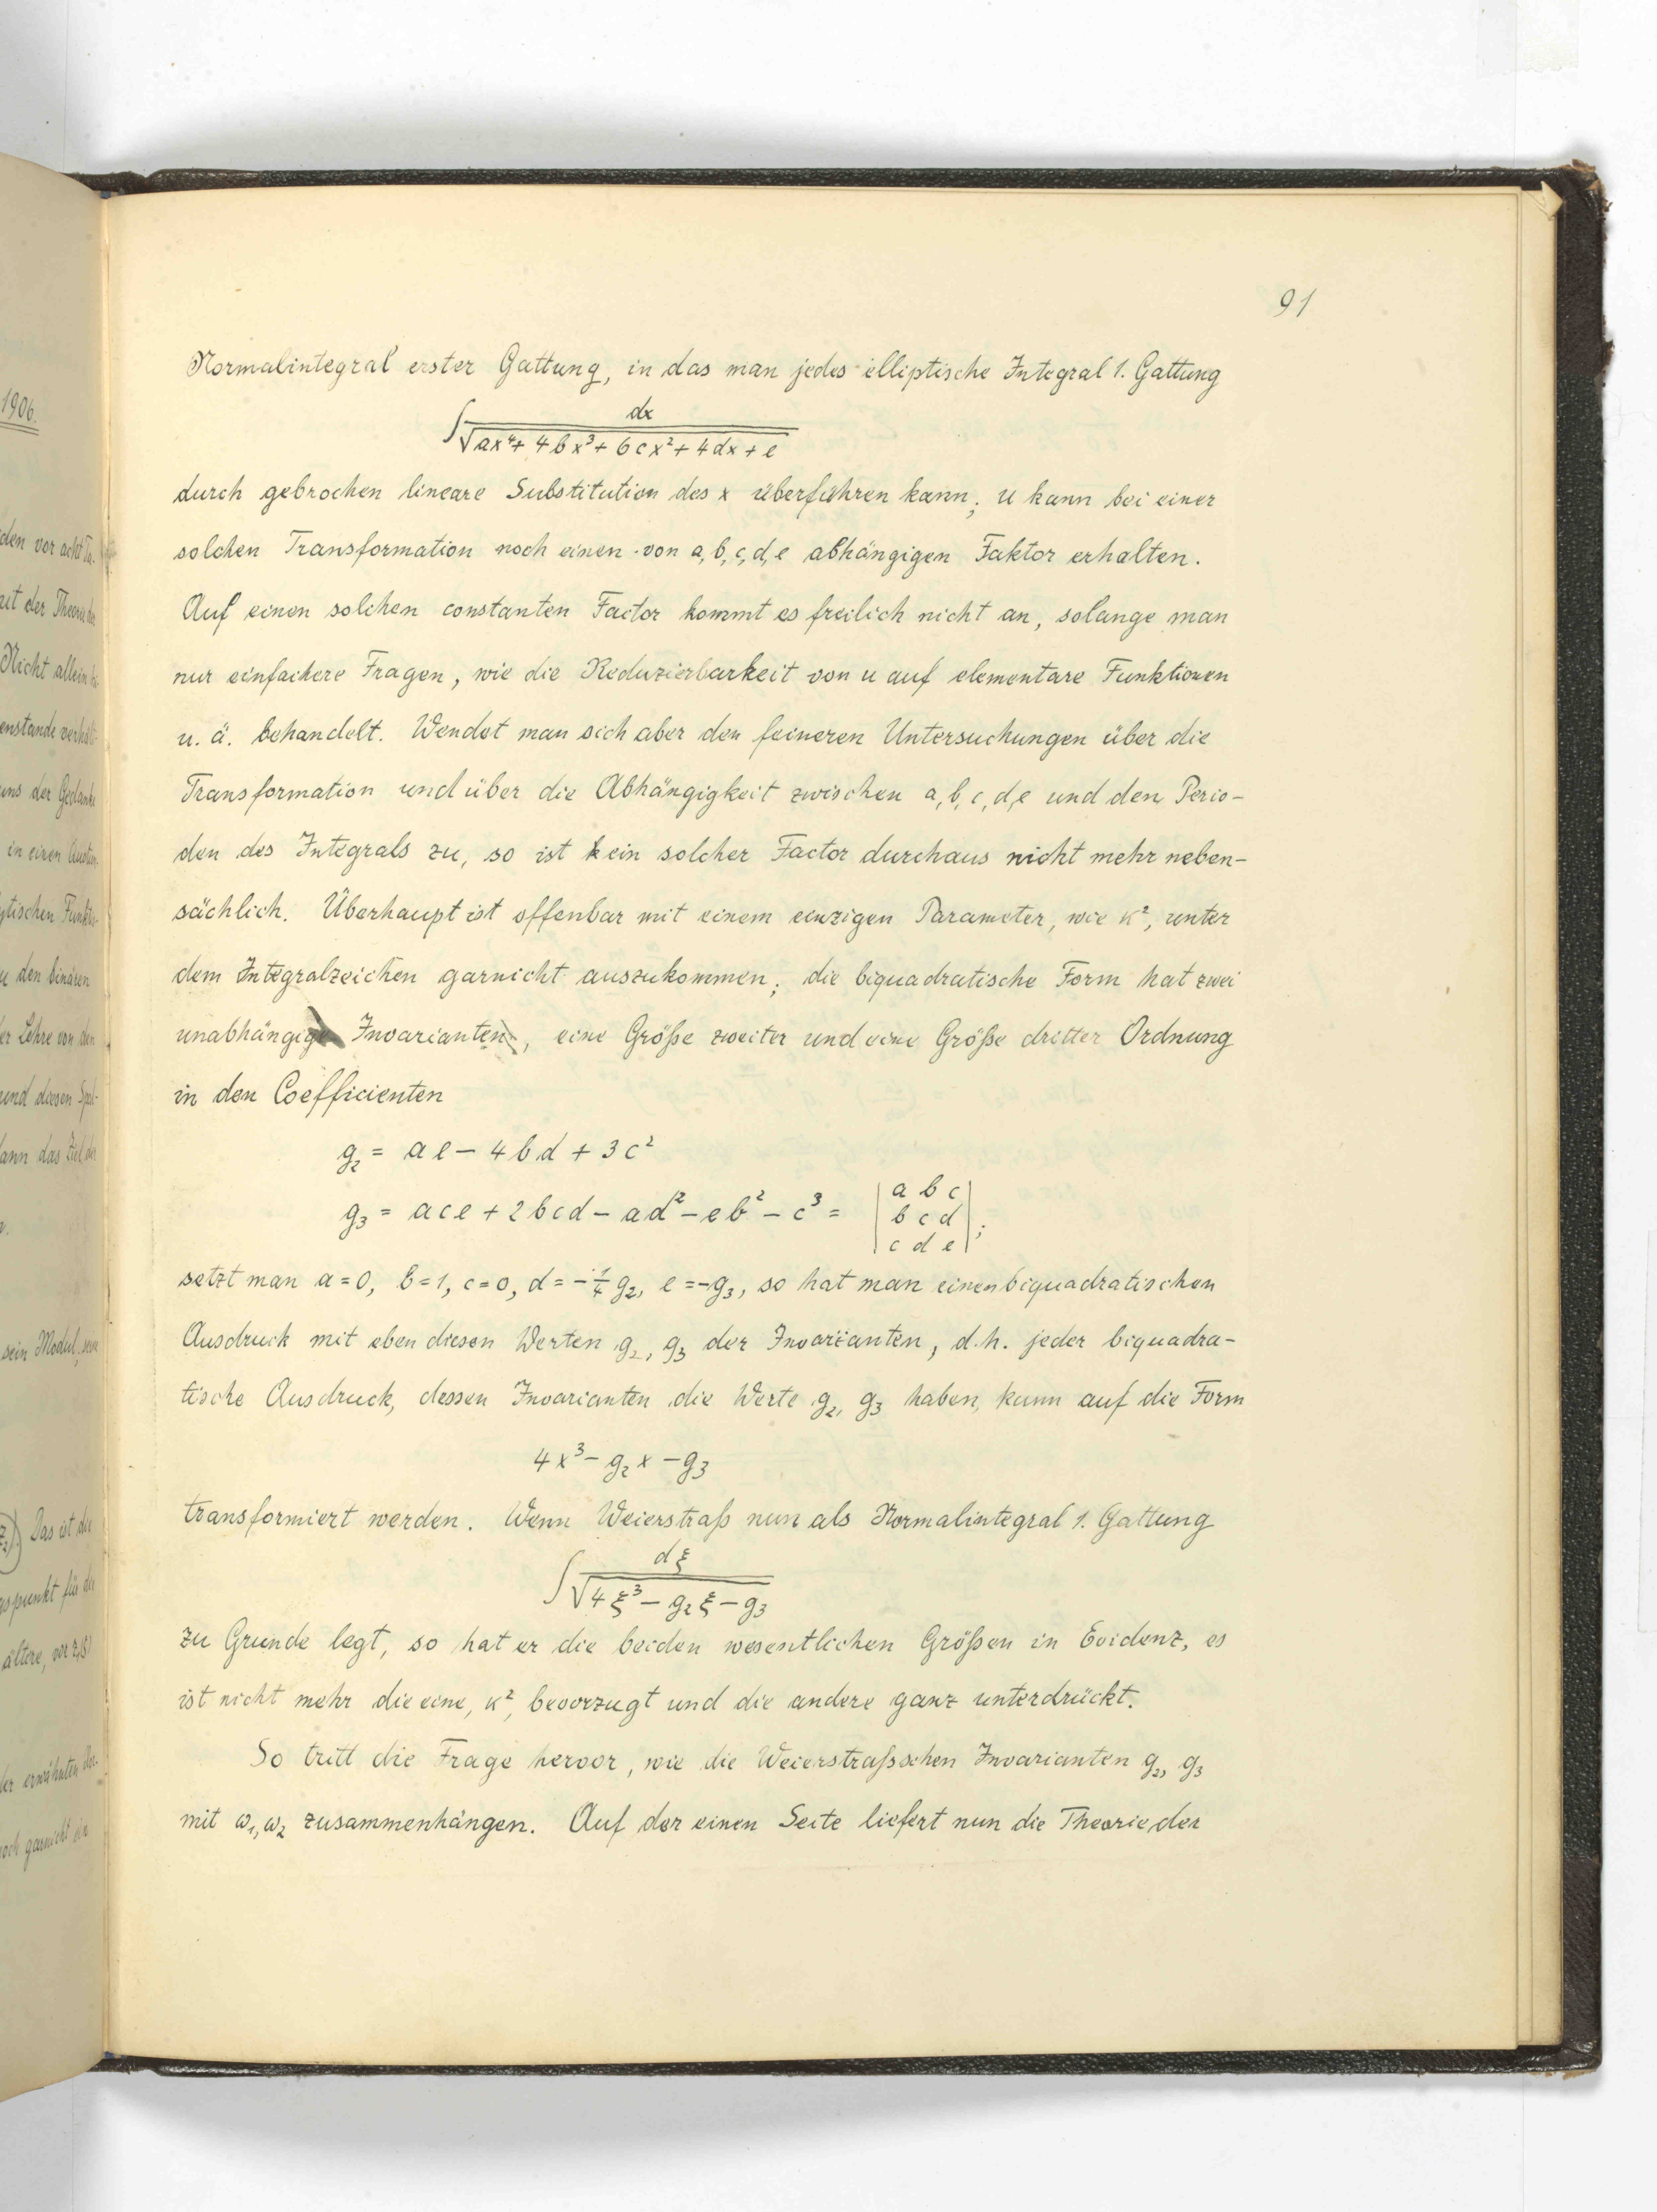 91
Normalintegral erster Gattung, in das man jedes elliptische Integral 1. Gattung
∫ dx / √(ax⁴ + 4bx³ + 6cx² + 4dx + e)
durch gebrochen lineare Substitution des x überführen kann; u kann bei einer
solchen Transformation noch einen von a, b, c, d, e abhängigen Faktor erhalten.
Auf einen solchen constanten Factor kommt es freilich nicht an, solange man
nur einfachere Fragen, wie die Reduzierbarkeit von u auf elementare Funktionen
u. ä. behandelt. Wendet man sich aber den feineren Untersuchungen über die
Transformation und über die Abhängigkeit zwischen a, b, c, d, e und den Perio-
den des Integrals zu, so ist ein solcher Factor durchaus nicht mehr neben-
sächlich. Überhaupt ist offenbar mit einem einzigen Parameter, wie κ², unter
dem Integralzeichen garnicht auszukommen; die biquadratische Form hat zwei
unabhängige Invarianten, eine Größe zweiter und eine Größe dritter Ordnung
in den Coefficienten
g₂ = ae − 4bd + 3c²
g₃ = ace + 2bcd − ad² − eb² − c³ = | a b c |
| b c d | ;
| c d e |
setzt man a = 0, b = 1, c = 0, d = −¼ g₂, e = −g₃, so hat man einen biquadratischen
Ausdruck mit eben diesen Werten g₂, g₃ der Invarianten, d.h. jeder biquadra-
tische Ausdruck, dessen Invarianten die Werte g₂, g₃ haben, kann auf die Form
4x³ − g₂x − g₃
transformiert werden. Wenn Weierstraß nun als Normalintegral 1. Gattung
∫ dξ / √(4ξ³ − g₂ξ − g₃)
zu Grunde legt, so hat er die beiden wesentlichen Größen in Evidenz, es
ist nicht mehr die eine, κ², bevorzugt und die andere ganz unterdrückt.
So tritt die Frage hervor, wie die Weierstraßschen Invarianten g₂, g₃
mit ω₁, ω₂ zusammenhängen. Auf der einen Seite liefert nun die Theorie der
1906.